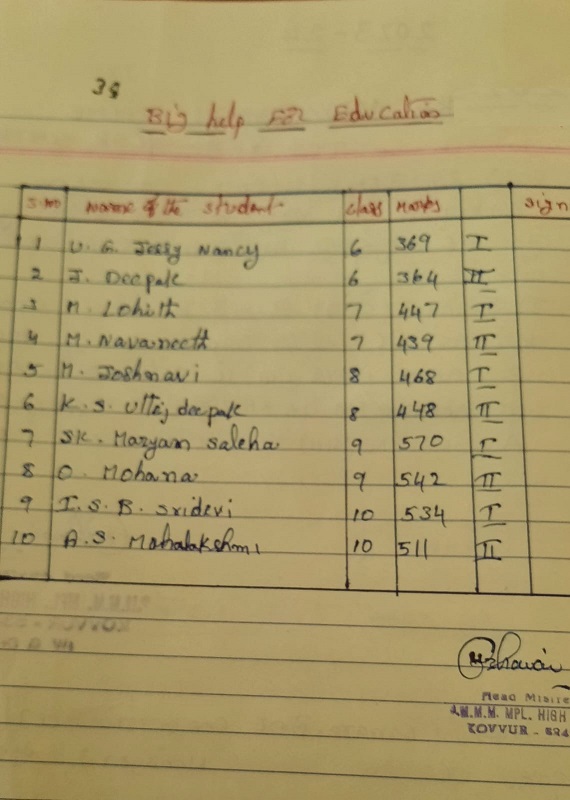 38
Big help For Education
S.no Name of the student class Marks sign
1 V. G. Jessy Nancy 6 369 I
2 J. Deepak 6 364 II
3 M. Lohith 7 447 I
4 M. Navaneeth 7 439 II
5 M. Joshnavi 8 468 I
6 K. S. Uttej deepak 8 448 II
7 SK. Maryam Saleha 9 570 I
8 O. Mohana 9 542 II
9 I. S. B. Sridevi 10 534 I
10 A. S. Mahalakshmi 10 511 II
Head Mistre
MPL. HIGH
KOVVUR - 534